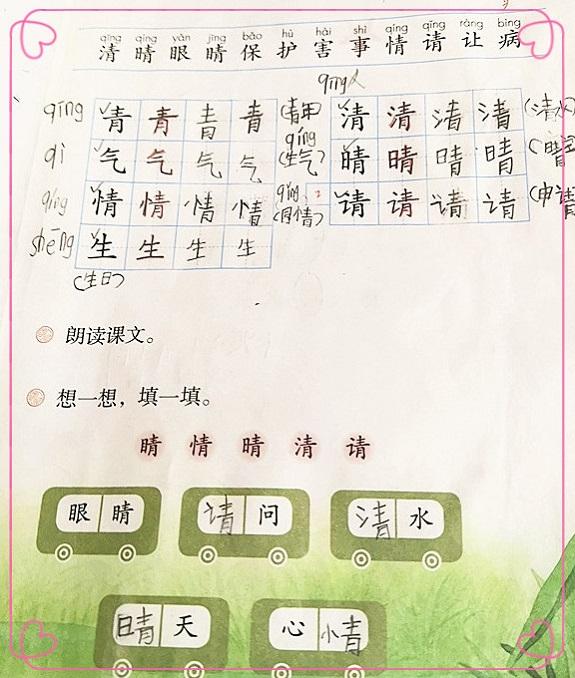 qīng qíng yǎn jīng bǎo hù hài shì qíng qǐng ràng bìng
清 晴 眼 睛 保 护 害 事 情 请 让 病
qīng 青 青 青 青 清 清 清 清 (清水)
qì 气 气 气 气 (生气) 晴 晴 晴 晴
qíng 情 情 情 情 (同情) 请 请 请 请 (申请)
shēng 生 生 生 生
(生日)
朗读课文。
想一想，填一填。
睛 情 晴 清 请
眼 睛 请 问 清 水
晴 天 心 情